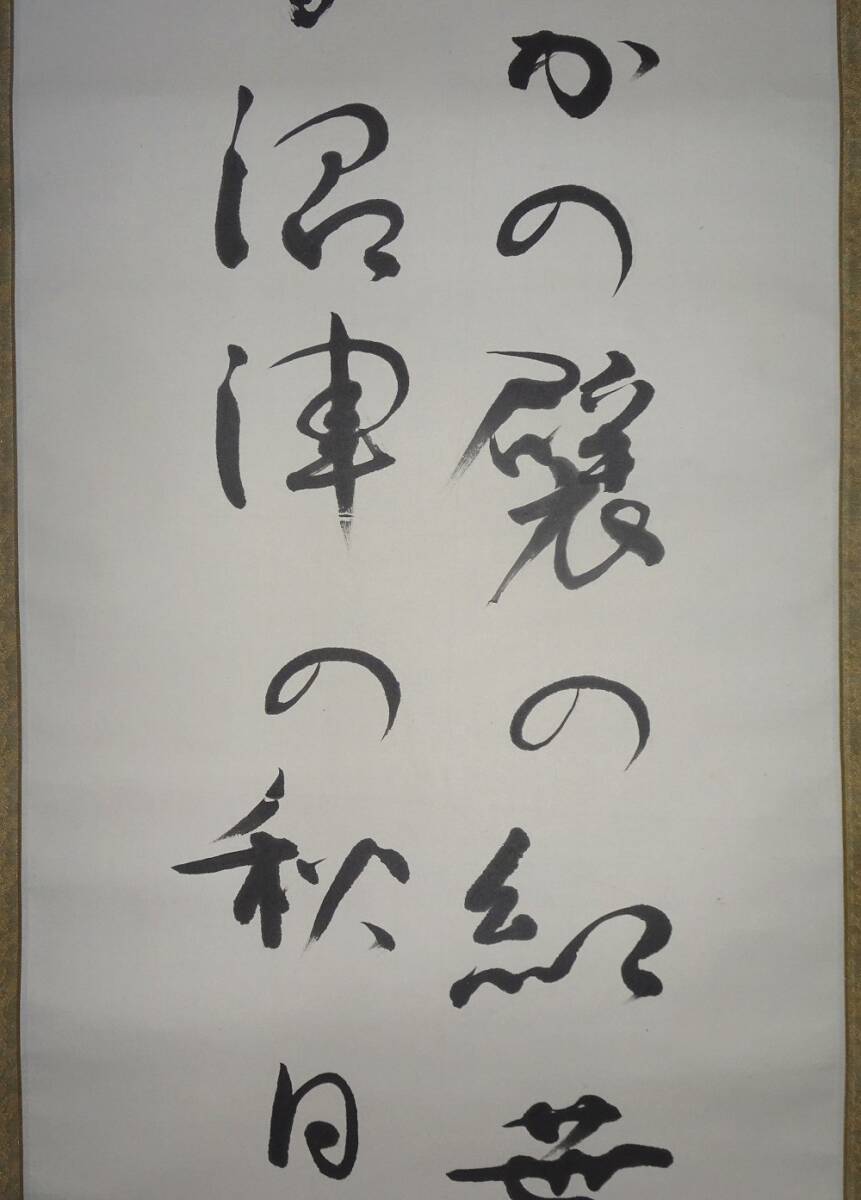 かの襞の紅
沼津の秋日